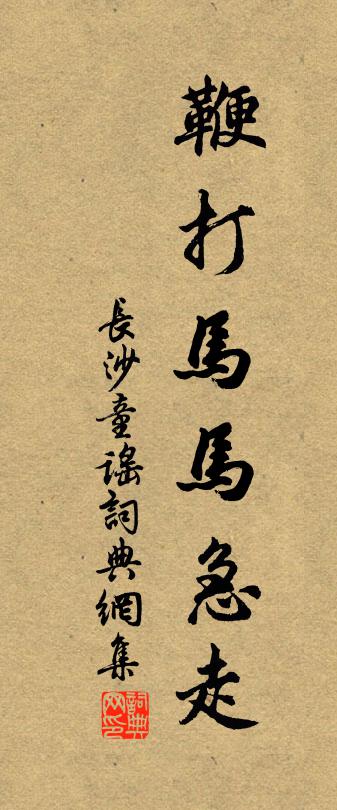 鞭打馬馬急走
長沙童謠詞典網集
詞典网印